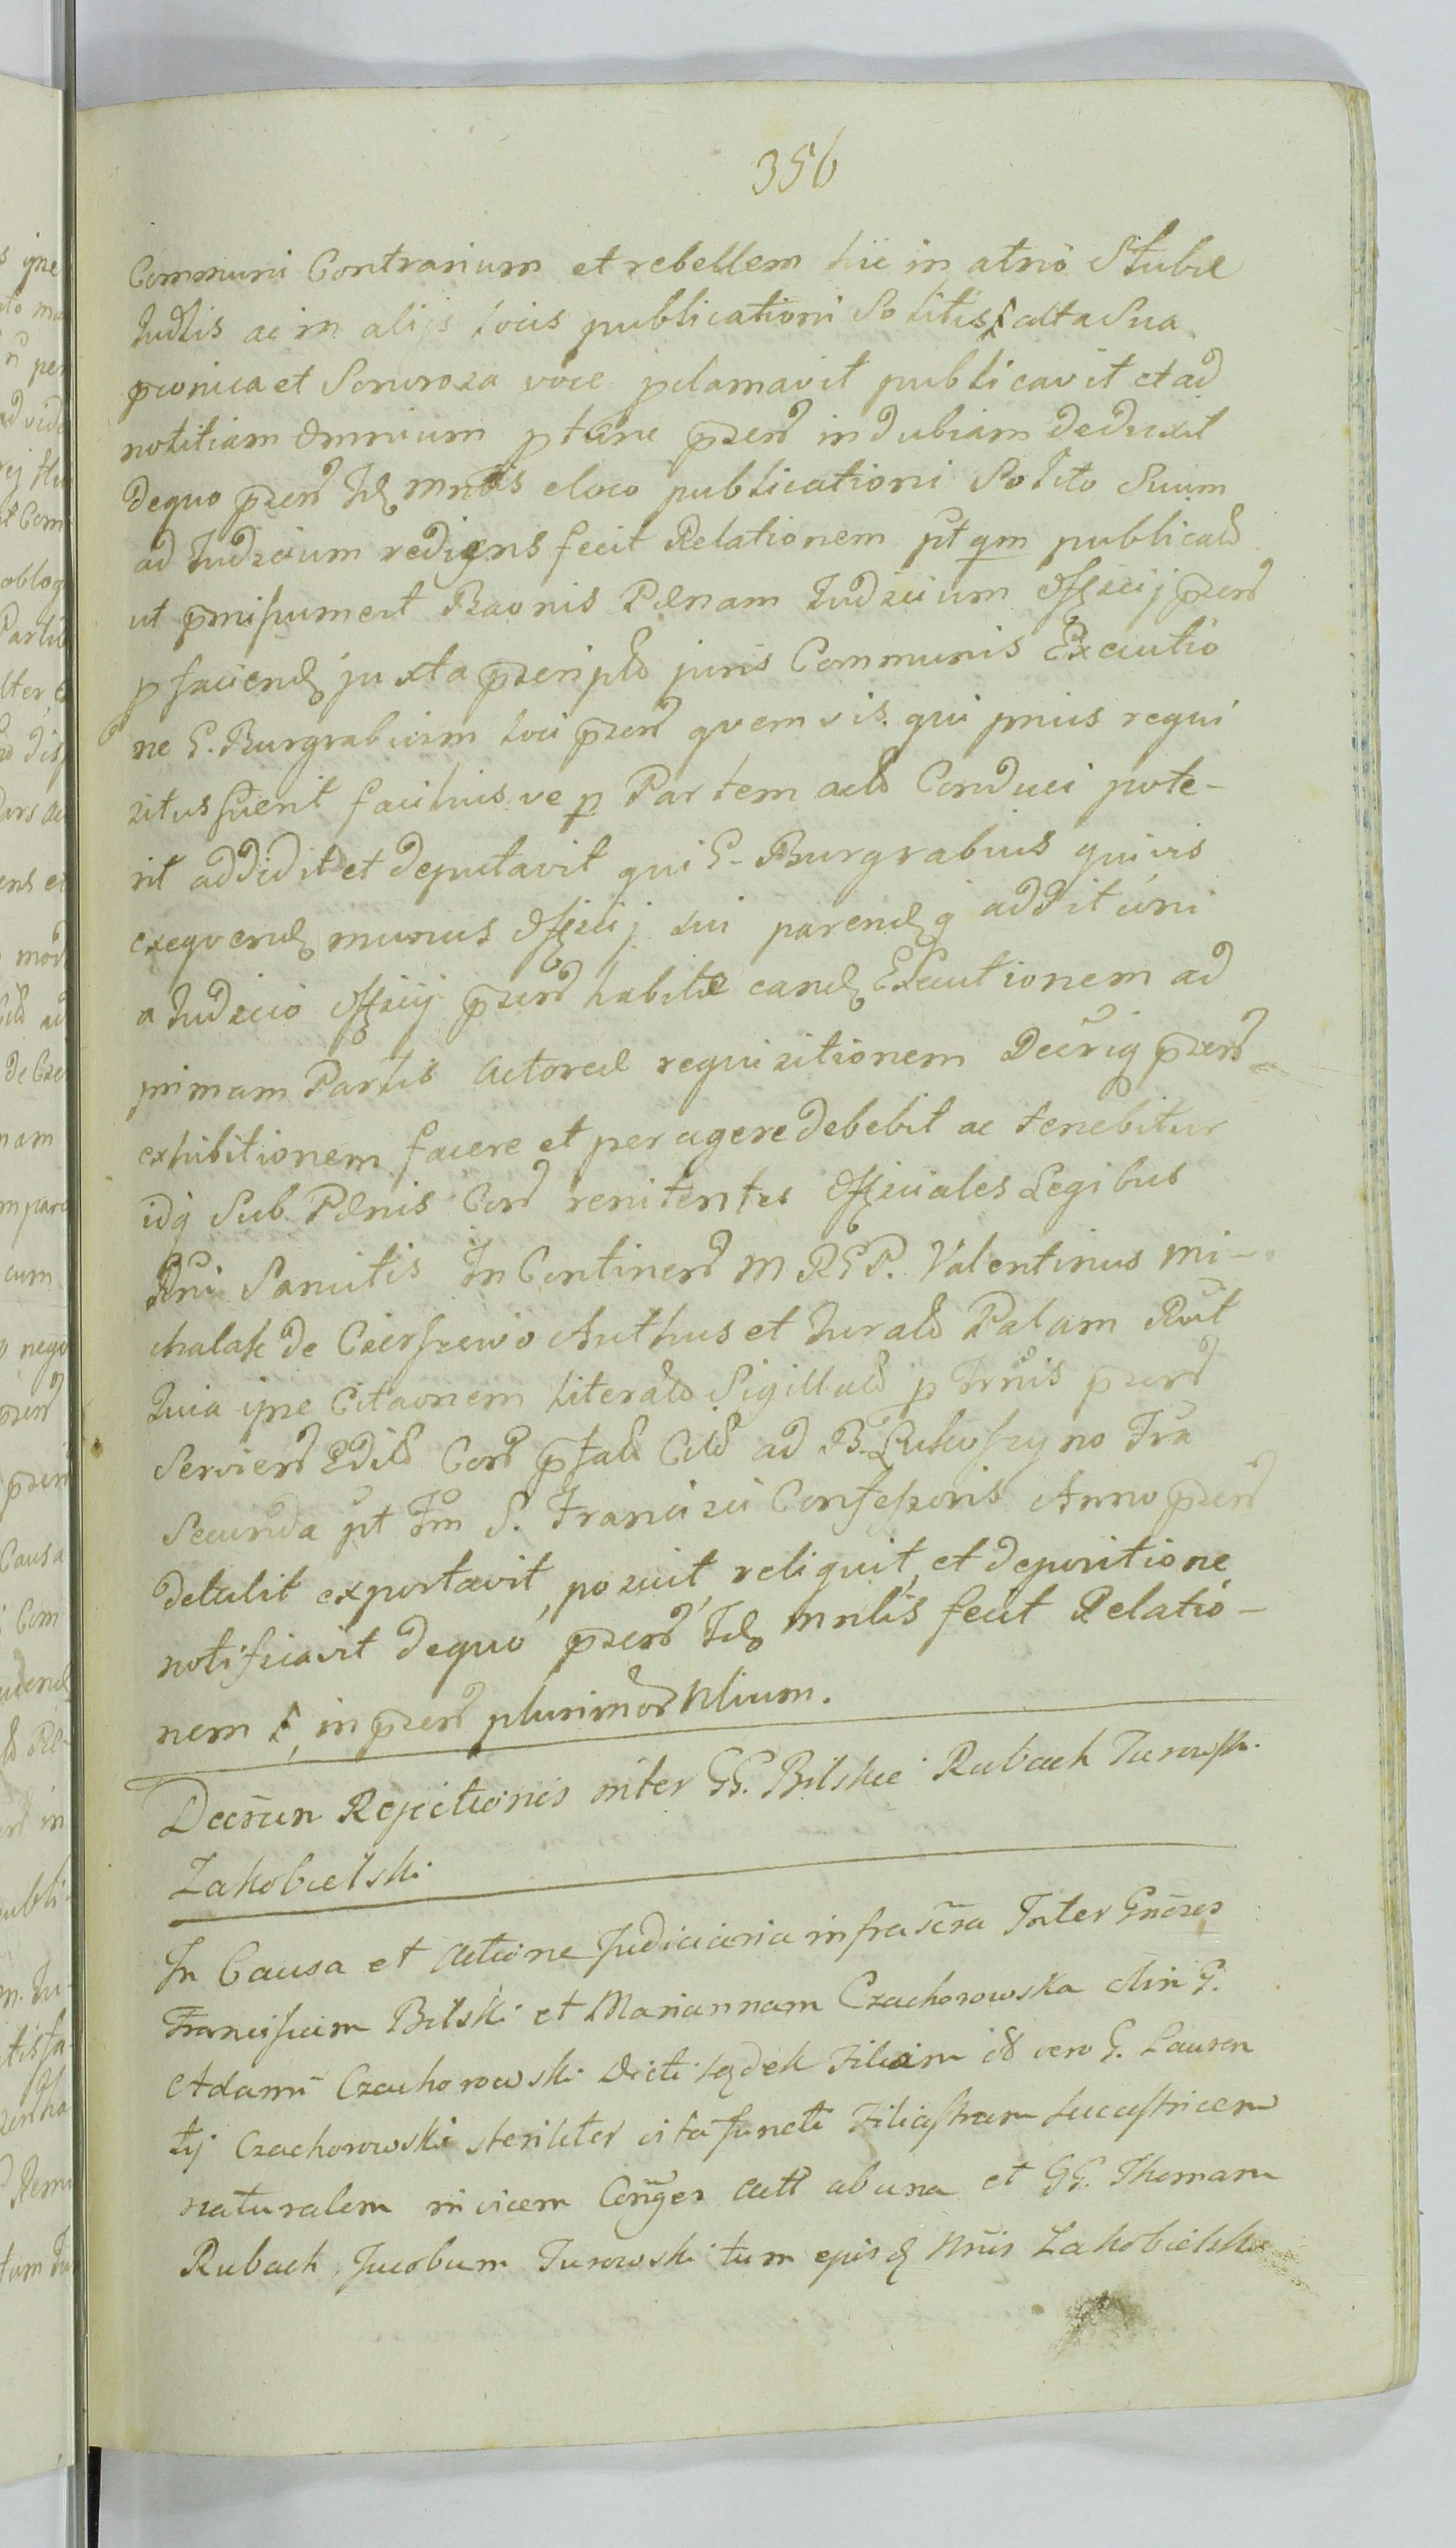 356
Communi Contrarium et rebellem hic in atrio Stubæ
Judlis ac in alijs locis publicationi Solitis alta sua
pconica et Sonoroza voce pclamavit publicavit et ad
notitiam Omnium ptunc pzend indubiam deduxit
dequo pzend Id Mnlis eloco publicationi Solito Suum
ad Judzcium rediens fecit Relationem pt qm publicald
ut pmissum est Baonis Pænam Judzicium Offzcij pzend
p faciend juxta pzcripld juris Communis Executio
ne G. Burgrabium loci pzend quemvis qui prius requi
zitus fuerit faciliusve p Partem acld Conduci pote-
rit addidit et deputavit qui G. Burgrabius quivis
exequend munus Offzcij sui parendq additioni
a Judzcio Offzcij pzend habitæ eand Executionem ad
primam Partis Actoreæ requizitionem Decriq pzend
exhibitionem facere et peragere debebit ac tenebitur
idq Sub Pænis Con renitentes Offzciales Legibus
Rni Sancitis In Continend M RGP. Valentinus Mi-
chalak de Cierszewo Authus et Jurald Palam Rvit
Quia ipse Citaonem Literald Sigillald p Trnis pzend
Serviend Edild Cord pfald Cild ad B. Lukoszyno Fra
Secunda pt Fm S. Francizci Confessoris Anno pzend
detulit exportavit, pozuit, reliquit, et depozitione
notificavit dequo pzend Id Mnlis fecit Relatio-
nem in pzend plurimor Nlium.
Decrum Rejectionis inter GG. Bilskie Rubach Turowsk.
Zakobielski
In Causa et Actione Judiciaria infrascra Inter Gnoses
Franciscum Bilski et Mariannam Czachorowska olim G.
Adami Czachorowski dicti Lądek Filiam id vero G. Lauren
tij Czachorowski steriliter vita functi Filiastram Sucestricem
naturalem invicem Conges Actt abuna et GG. Thomam
Rubach Jacobum Turowski tum ejusd Nris Zakobielski